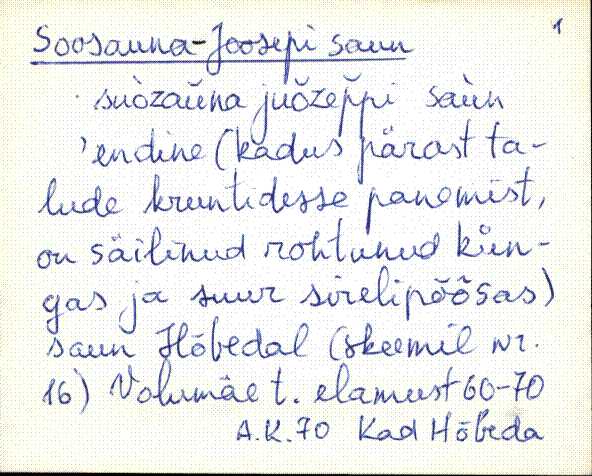 1
Soosauna-Joosepi saun
suòzaŭna juŏzep̆pi saùn
'endine (kadus pärast ta-
lude kruntidesse panemist,
on säilinud rohtunud kün-
gas ja suur sirelipõõsas)
saun Hõbedal (skeemil nr.
16) Volumäe t. elamust 60-70
A.K.70 Kad Hõbeda